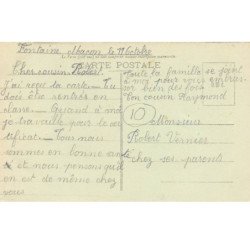 Fontaine Macon le 17 Octobre
CARTE POSTALE
Cher cousin Robert.
J'ai reçu ta carte. Tu
dois être rentrés en
classe. Quand à moi
je travaille pour le cer
tificat. Tous nous
sommes en bonne santé
et nous pensons qu'il
en est de même chez
vous.
Toute la famille se joint
à moi pour vous embras
ser bien des fois
ton cousin Raymond
10
Monsieur
Robert Vernier
chez ses parents